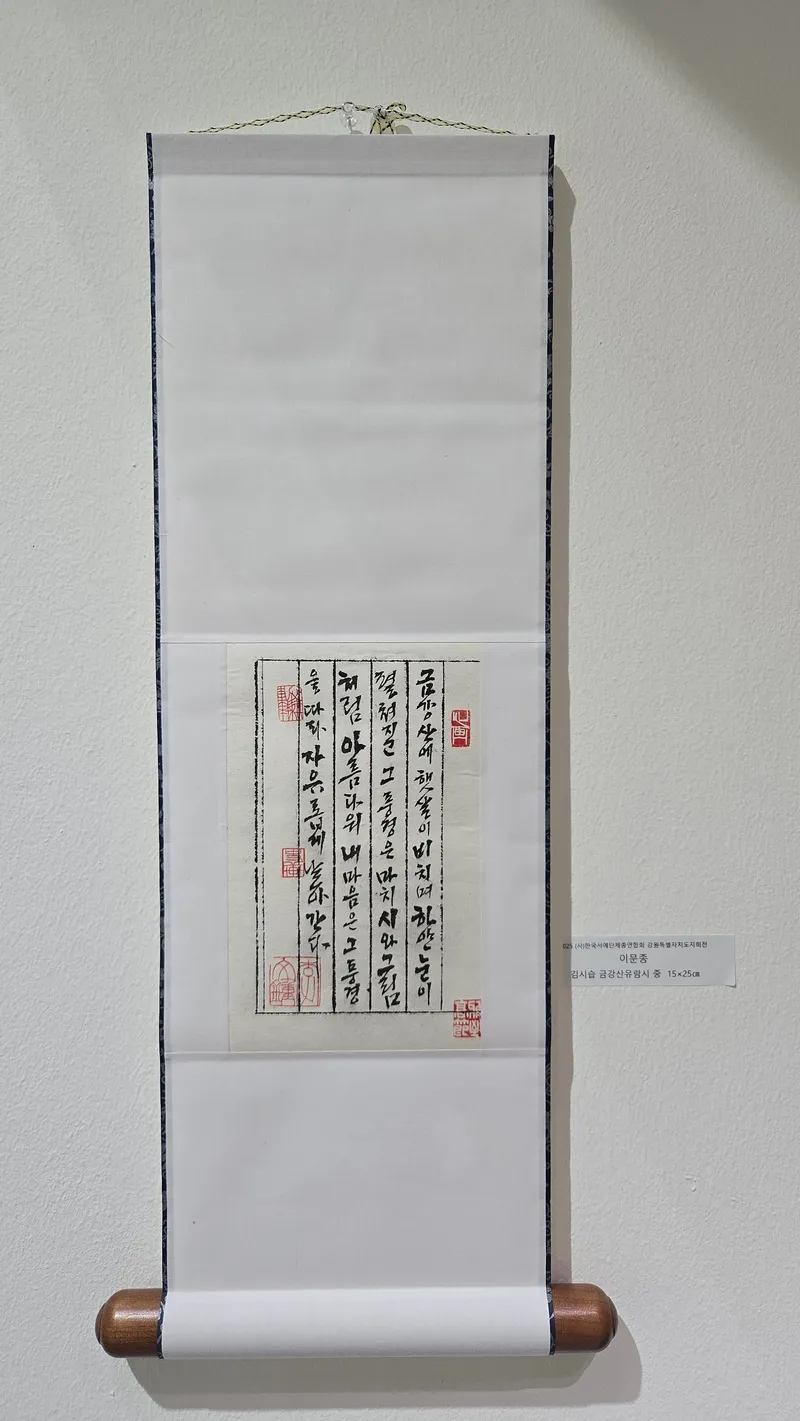 금강산에 햇살이 비치며 하얀 눈이
펼쳐진 그 풍경은 마치 시와 그림
처럼 아름다워 내 마음은 그 풍경
을 따라 자유롭게 날아간다
025 (사)한국서예단체총연합회 강원특별자치도지회전
이문종
김시습 금강산유람시 중 15×25㎝